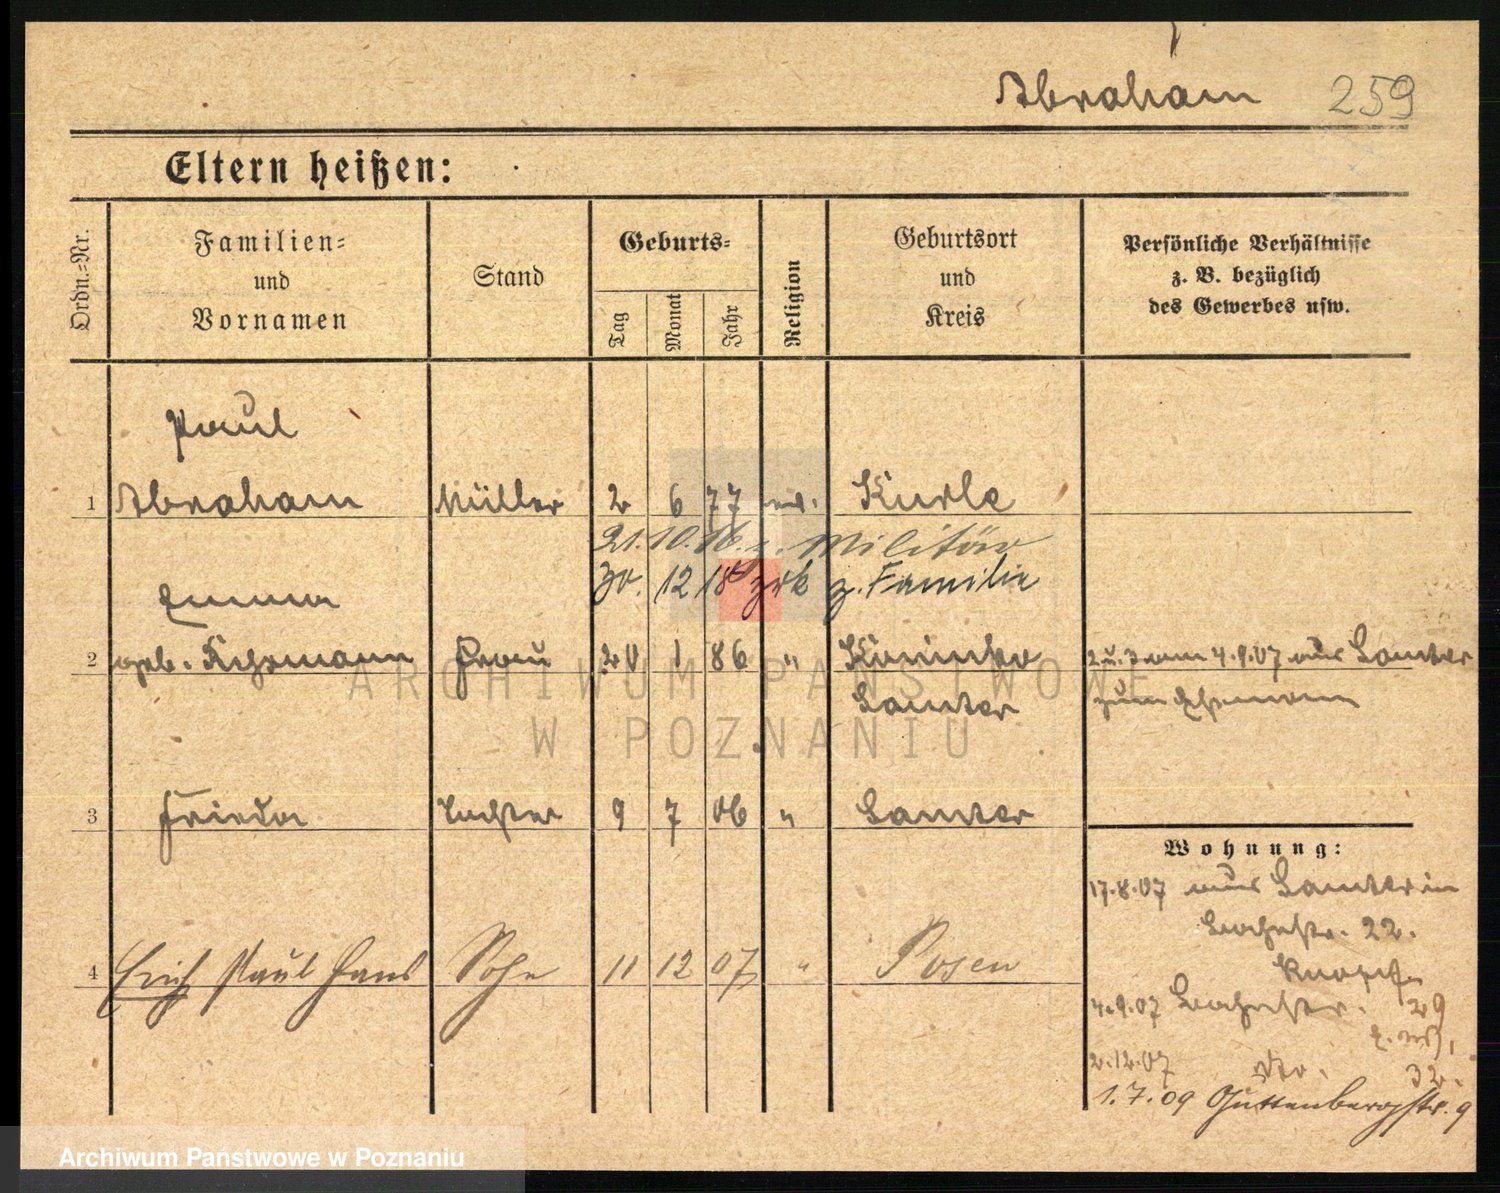 Abraham 259
Eltern heißen:
Ordn.-Nr.
Familien-
und
Vornamen
Stand
Geburts-
Tag
Monat
Jahr
Religion
Geburtsort
und
Kreis
Persönliche Verhältnisse
z. B. bezüglich
des Gewerbes usw.
Paul
1 Abraham Müller 2 6 77 ev.
21.10.16 z. Militär
30. 12 18 zrk z. Familie
Emma
2 geb. Frau 20 1 86 "
2 u. 3 am 4.9.07 aus Samter
Samter
zum Ehemann
3 Frieda Tochter 9 7 06 " Samter
Wohnung:
17.8.07 aus Samter in
22.
4 Erich Paul Hans Sohn 11 12 07 " Posen
4.9.07 29
2.12.07 32.
1.7.09 Guttenbergstr. 9
ARCHIWUM PAŃSTWOWE
W POZNANIU
Archiwum Państwowe w Poznaniu